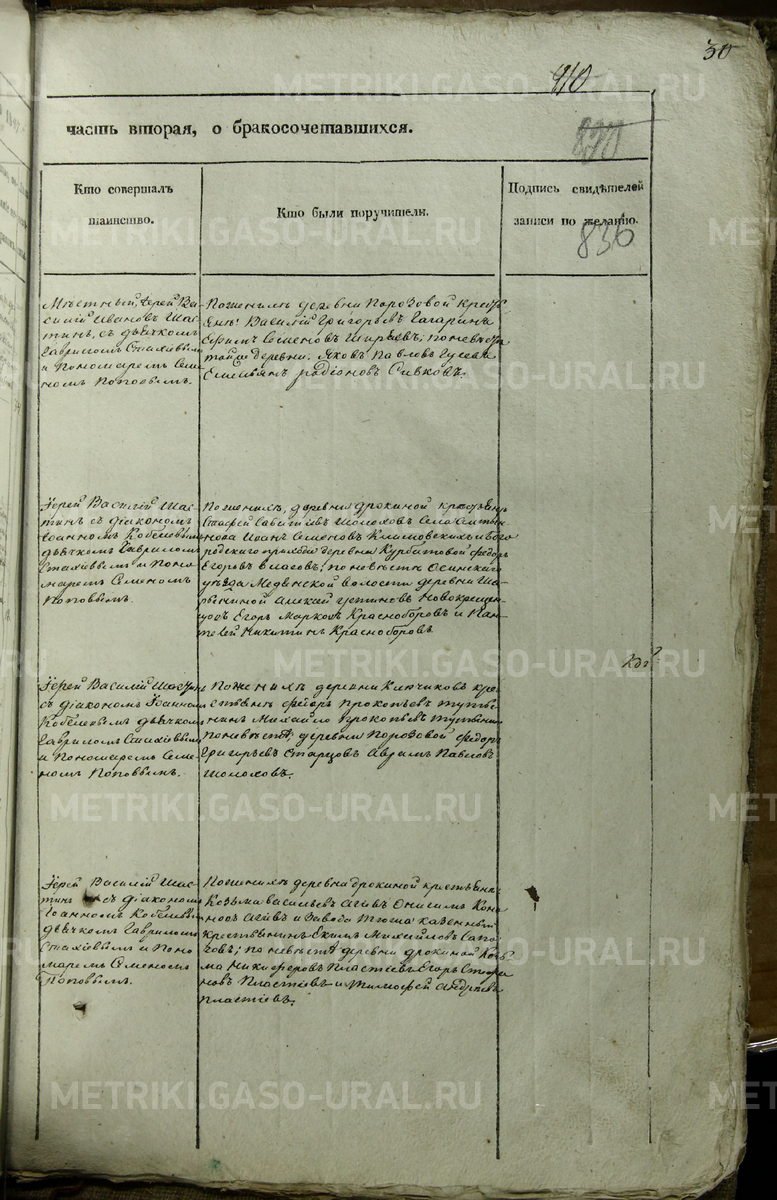 30
910
часть вторая, о бракосочетавшихся.
830
Кто совершалъ
таинство.
Кто были поручители.
Подпись свидѣтелей
записи по желанію.
836
Мѣстный Іерей Ва-
силій Ивановъ Шас-
тинъ, съ дьячкомъ
Гавриломъ Стахіевымъ
и Пономаремъ Семе
номъ Поповымъ.
По женихѣ деревни Порозовой кресть
яне Василій Григорьевъ Гагаринъ
Семеновъ Ширяевъ; по невѣстѣ
той же деревни Яковъ Павловъ Гусевъ
Емельянъ Родіоновъ Сивковъ.
Іерей Василій Шас-
тинъ съ діакономъ
Іоанномъ Кобелевымъ
дьячкомъ Гавриломъ
Стахіевымъ и Поно
маремъ Семеномъ
Поповымъ.
По женихѣ, деревни Дрокиной крестьяне
Савитіевъ Шолоховъ Села
Иванъ Семеновъ Климовскихъ и
родскаго прихода деревни Курбатовой Федоръ
Егоровъ Власовъ; по невѣстѣ Осинскаго
уѣзда Медянской волости деревни
Алексѣй Устиновъ Новокрещен
Егоръ Марковъ Красноборовъ и Пан-
телей Никитинъ Красноборовъ
Іерей Василій Шастинъ
съ діакономъ Іоанномъ
Кобелевымъ дьячкомъ
Гавриломъ Стахіевымъ
и Пономаремъ Семе
номъ Поповымъ.
По женихѣ деревни Кипчаковъ кре
стьяне Прокопьевъ
Михайло Прокопьевъ
по невѣстѣ; деревни Порозовой Федоръ
Григорьевъ Старцовъ Павловъ
Шолоховъ.
Іерей Василій Шас-
тинъ съ діакономъ
Іоанномъ Кобелевымъ
дьячкомъ Гавриломъ
Стахіевымъ и Поно
маремъ Семеномъ
Поповымъ.
По женихѣ деревни Дрокиной крестьяне
Козьма Васильевъ Агѣевъ Онисимъ Коно
новъ Агѣевъ и завода Тюша казенный
крестьянинъ Екимъ Михайловъ Сапо
говъ; по невѣстѣ деревни Дрокиной Козь
ма Никифоровъ Пластѣевъ Егоръ Стефа
новъ Пластѣевъ и Тимофей Андреевъ
Пластѣевъ.
METRIKI.GASO-URAL.RU